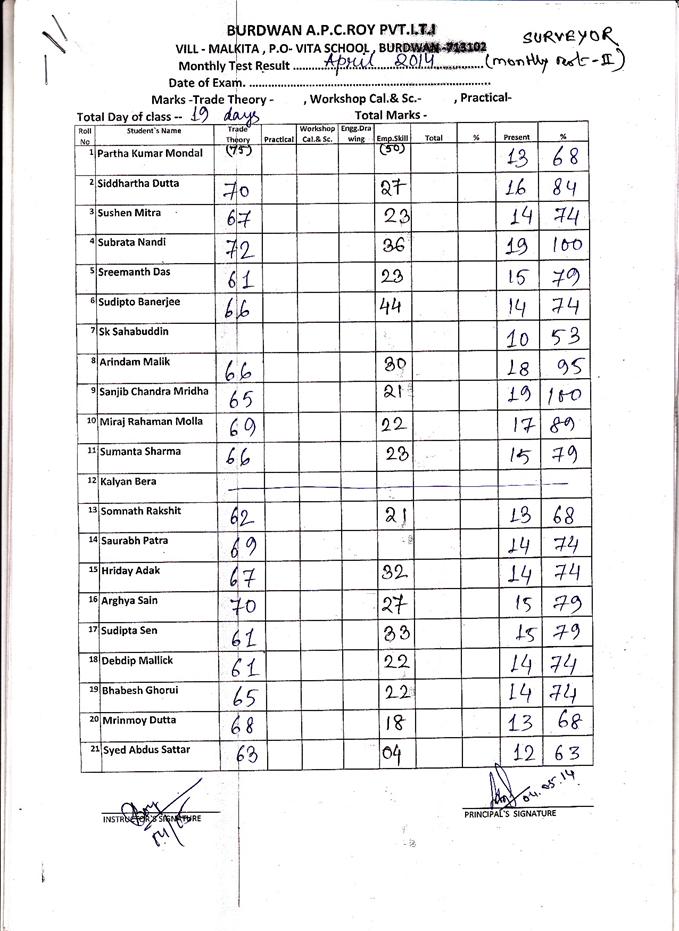 BURDWAN A.P.C.ROY PVT.I.T.I
SURVEYOR
VILL - MALKITA , P.O- VITA SCHOOL , BURDWAN -713102
Monthly Test Result .... April 2014 .... (monthly test - II)
Date of Exam. ....
Marks -Trade Theory - , Workshop Cal.& Sc.- , Practical-
Total Day of class -- 19 days Total Marks -
Roll No Student's Name Trade Theory Practical Workshop Cal.& Sc. Engg.Drawing Emp.Skill Total % Present %
(75) (50)
1 Partha Kumar Mondal 13 68
2 Siddhartha Dutta 70 27 16 84
3 Sushen Mitra 67 23 14 74
4 Subrata Nandi 72 36 19 100
5 Sreemanth Das 61 23 15 79
6 Sudipto Banerjee 66 44 14 74
7 Sk Sahabuddin 10 53
8 Arindam Malik 66 30 18 95
9 Sanjib Chandra Mridha 65 21 19 100
10 Miraj Rahaman Molla 69 22 17 89
11 Sumanta Sharma 66 23 15 79
12 Kalyan Bera
13 Somnath Rakshit 62 21 13 68
14 Saurabh Patra 69 14 74
15 Hriday Adak 67 32 14 74
16 Arghya Sain 70 27 15 79
17 Sudipta Sen 61 33 15 79
18 Debdip Mallick 61 22 14 74
19 Bhabesh Ghorui 65 22 14 74
20 Mrinmoy Dutta 68 18 13 68
21 Syed Abdus Sattar 63 04 12 63
04.05.14
INSTRUCTOR'S SIGNATURE PRINCIPAL'S SIGNATURE